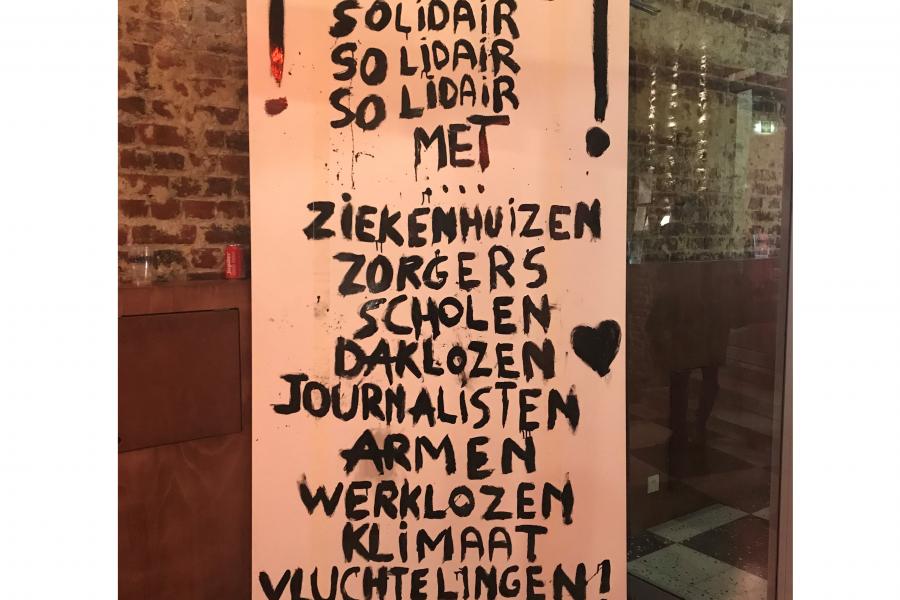 SOLiDAiR
SOLiDAiR
SOLiDAiR
MET
....
ZiEKENHUiZEN
ZORGERS
SCHOLEN
DAKLOZEN
JOURNALiSTEN
ARMEN
WERKLOZEN
KLiMAAT
VLUCHTELINGEN!